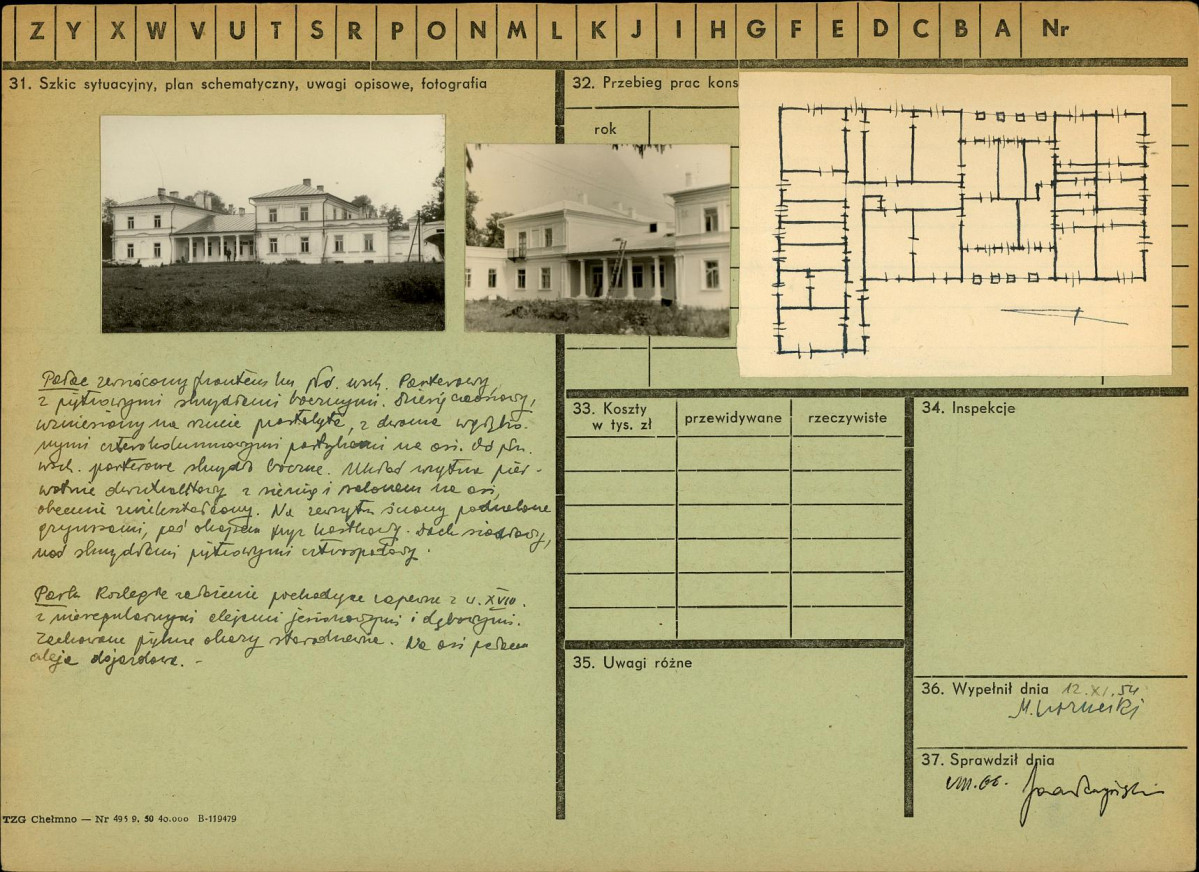 Z Y X W V U T S R P O N M L K J I H G F E D C B A Nr
31. Szkic sytuacyjny, plan schematyczny, uwagi opisowe, fotografia
Pałac zwrócony frontem ku płd. wsch. Parterowy,
z piętrowymi skrzydłami bocznymi.
wzniesiony na rzucie prostokąta, z dwoma wydłużo-
nymi czterokolumnowymi portykami na osi. Od płn.
wsch. parterowe skrzydło boczne. Układ wnętrza pier-
wotnie dwutraktowy z sienią i salonem na osi,
obecnie zniekształcony. Na zewnątrz ściany podzielone
gzymsami, pod okapem fryz kostkowy. Dach siodłowy,
nad skrzydłami piętrowymi czterospadowy.
Park Rozległe założenie pochodzące zapewne z w. XVIII.
z nieregularnymi alejami jesionowymi i dębowymi.
Zachowane piękne okazy starodrzewia. Na osi pałacu
aleja dojazdowa. -
TZG Chełmno — Nr 495 9. 50 40.000 B-119479
32. Przebieg prac kons
rok
33. Koszty
w tys. zł
przewidywane
rzeczywiste
34. Inspekcje
35. Uwagi różne
36. Wypełnił dnia 12.XI.54
37. Sprawdził dnia
VIII.66.